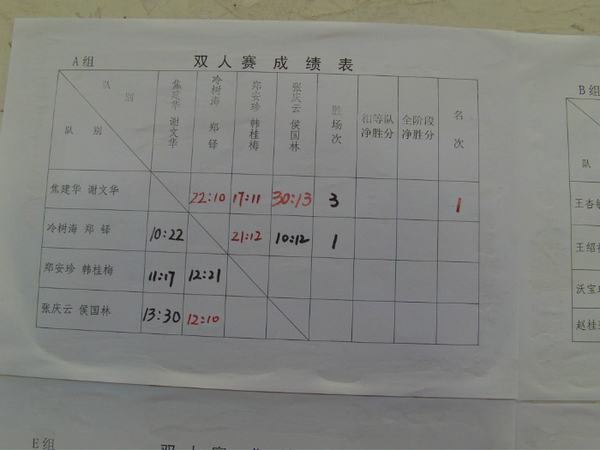 A组
双人赛成绩表
队别
队别
焦建华 谢文华
冷树海 郑铎
郑安珍 韩桂梅
张庆云 侯国林
胜场次
相等队净胜分
全阶段净胜分
名次
焦建华 谢文华 22:10 17:11 30:13 3 1
冷树海 郑铎 10:22 21:12 10:12 1
郑安珍 韩桂梅 11:17 12:21
张庆云 侯国林 13:30 12:10
B组
队
王杏
王绍
沃宝
赵桂
E组
双人赛